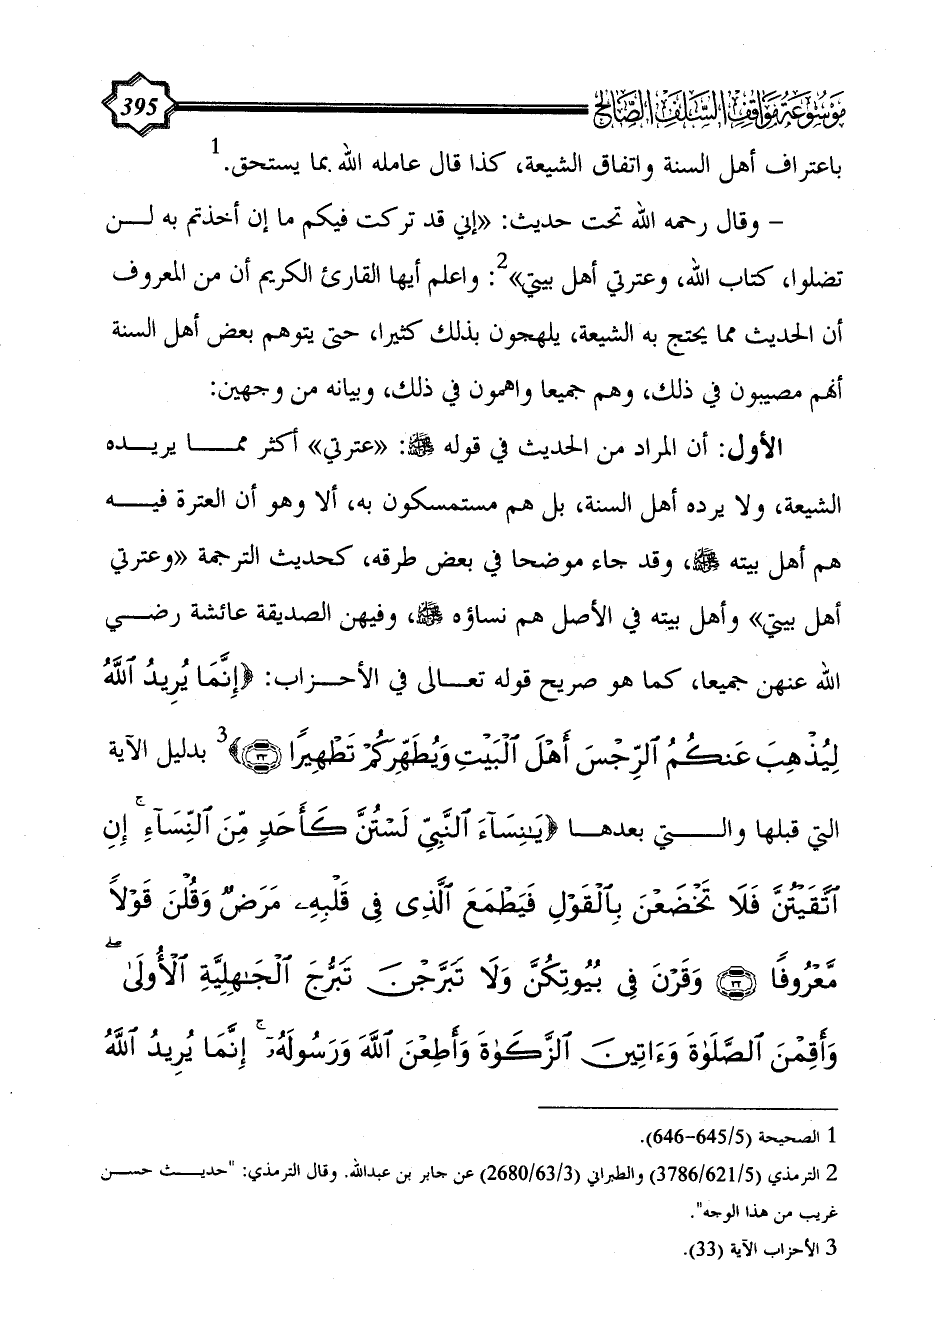 موسوعة مواقف السلف الصالح
395
باعتراف أهل السنة واتفاق الشيعة، كذا قال عامله الله بما يستحق.1
– وقال رحمه الله تحت حديث: «إني قد تركت فيكم ما إن أخذتم به لـــن
تضلوا، كتاب الله، وعترتي أهل بيتي»2: واعلم أيها القارئ الكريم أن من المعروف
أن الحديث مما يحتج به الشيعة، يلهجون بذلك كثيرا، حتى يتوهم بعض أهل السنة
أنهم مصيبون في ذلك، وهم جميعا واهمون في ذلك، وبيانه من وجهين:
الأول: أن المراد من الحديث في قوله ﷺ: «عترتي» أكثر ممـــا يريـــده
الشيعة، ولا يرده أهل السنة، بل هم مستمسكون به، ألا وهو أن العترة فيـــه
هم أهل بيته ﷺ، وقد جاء موضحا في بعض طرقه، كحديث الترجمة «وعترتي
أهل بيتي» وأهل بيته في الأصل هم نساؤه ﷺ، وفيهن الصديقة عائشة رضـــي
الله عنهن جميعا، كما هو صريح قوله تعـــالى في الأحـــزاب: ﴿إِنَّمَا يُرِيدُ ٱللَّهُ
لِيُذْهِبَ عَنكُمُ ٱلرِّجْسَ أَهْلَ ٱلْبَيْتِ وَيُطَهِّرَكُمْ تَطْهِيرًا ٣٣﴾3 بدليل الآية
التي قبلها والـــتي بعدهـــا ﴿يَـٰنِسَآءَ ٱلنَّبِيِّ لَسْتُنَّ كَأَحَدٍ مِّنَ ٱلنِّسَآءِ ۚ إِنِ
ٱتَّقَيْتُنَّ فَلَا تَخْضَعْنَ بِٱلْقَوْلِ فَيَطْمَعَ ٱلَّذِى فِى قَلْبِهِۦ مَرَضٌ وَقُلْنَ قَوْلًا
مَّعْرُوفًا ٣٢ وَقَرْنَ فِى بُيُوتِكُنَّ وَلَا تَبَرَّجْنَ تَبَرُّجَ ٱلْجَـٰهِلِيَّةِ ٱلْأُولَىٰ ۖ
وَأَقِمْنَ ٱلصَّلَوٰةَ وَءَاتِينَ ٱلزَّكَوٰةَ وَأَطِعْنَ ٱللَّهَ وَرَسُولَهُۥٓ ۚ إِنَّمَا يُرِيدُ ٱللَّهُ
1 الصحيحة (645/5-646).
2 الترمذي (3786/621/5) والطبراني (2680/63/3) عن جابر بن عبدالله. وقال الترمذي: "حديـــث حســـن
غريب من هذا الوجه".
3 الأحزاب الآية (33).